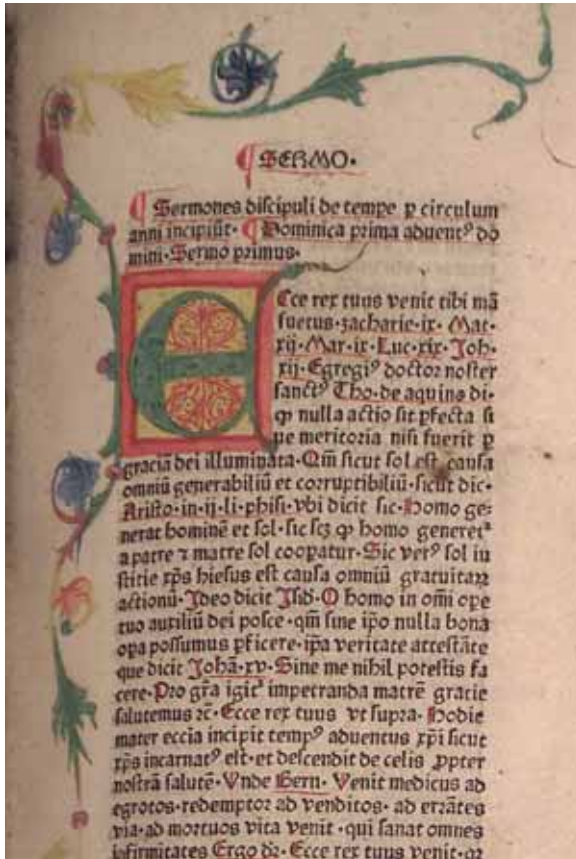 ¶ SERMO.
¶ Sermones discipuli de tempe ꝑ circulum
anni incipiūt. ¶ Dominica prima aduentꝰ do
mini. Sermo primus.
Ecce rex tuus venit tibi mā
suetus. zacharie. ix. Mat.
xij. Mar. ix. Luc. xix. Joh.
xij. Egregiꝰ doctor noster
sanctꝰ Tho. de aquino di.
ꝙ nulla actio sit ꝑfecta si
ue meritoria nisi fuerit ꝑ
graciā dei illuminata. Qm̄ sicut sol est causa
omniū generabiliū et corruptibiliū. sicut dic.
Aristo. in. ij. li. phisi. vbi dicit sic. Homo ge-
nerat hominē et sol. sic scꝫ ꝙ homo generet᷑
a patre ⁊ matre sol cooꝑatur. Sic verꝰ sol iu
stitie xp̄s hiesus est causa omniū gratuitaꝝ
actionū. Ideo dicit Isid. O homo in om̄i ope
tuo auxiliū dei posce. qm̄ sine ip̄o nulla bona
oꝑa possumus ꝑficere. ip̄a veritate attestāte
que dicit Johā. xv. Sine me nihil potestis fa
cere. Pro gr̄a igit᷑ impetranda matrē gracie
salutemus ⁊c̄. Ecce rex tuus vt supra. Hodie
mater eccīa incipit tempꝰ aduentus xp̄i sicut
xp̄s incarnatꝰ est. et descendit de celis ꝓpter
nostrā salutē. Vnde Bern. Venit medicus ad
egrotos. redemptor ad venditos. ad errātes
via. ad mortuos vita venit. qui sanat omnes
īfirmitates Ergo dr̄. Ecce rex tuus venit. qꝛ